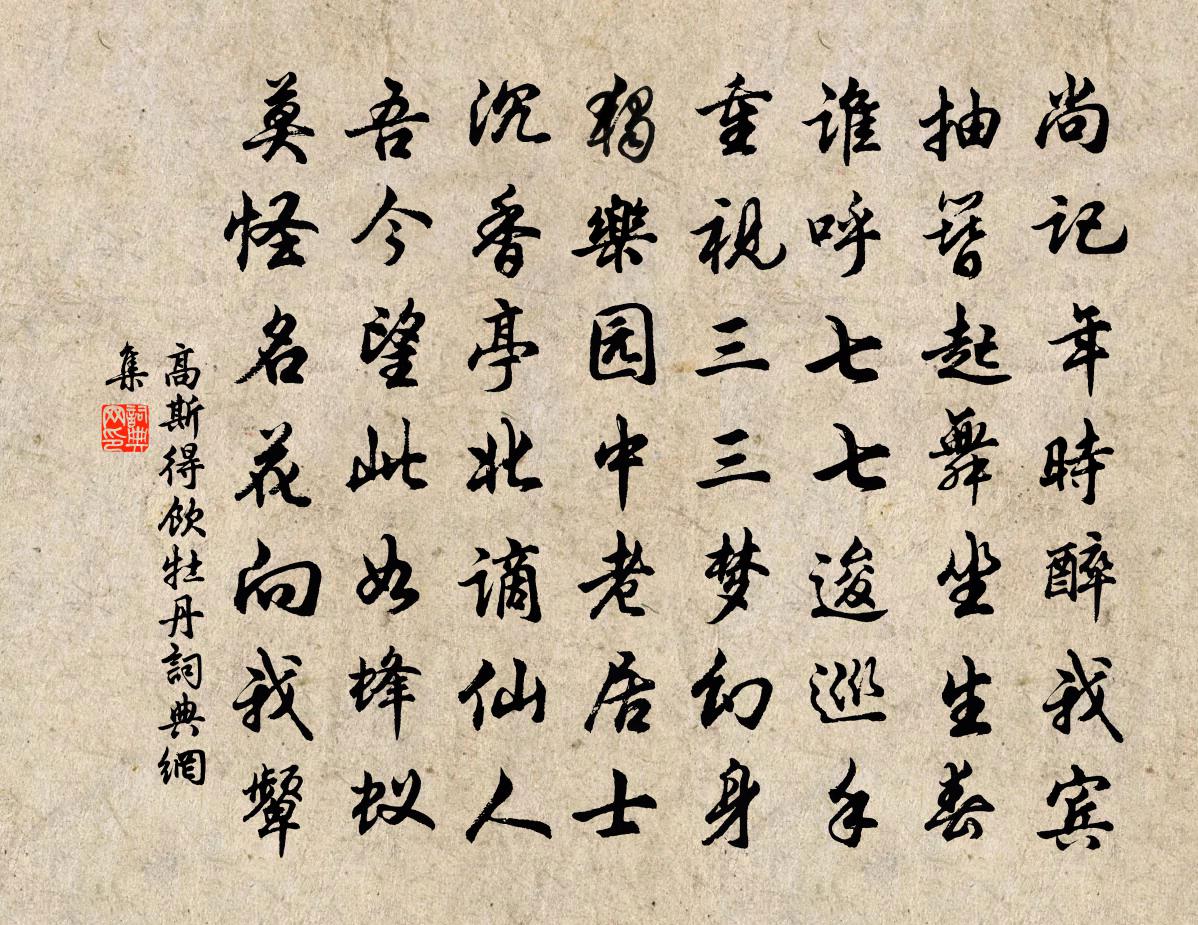 尚记年時醉我宾
抽簪起舞坐生春
谁呼七七逡巡手
重視三三梦幻身
獨樂园中老居士
沉香亭北谪仙人
吾今望此如蜂蚁
莫怪名花向我顰
高斯得飲牡丹詞典網
集
詞典
网印